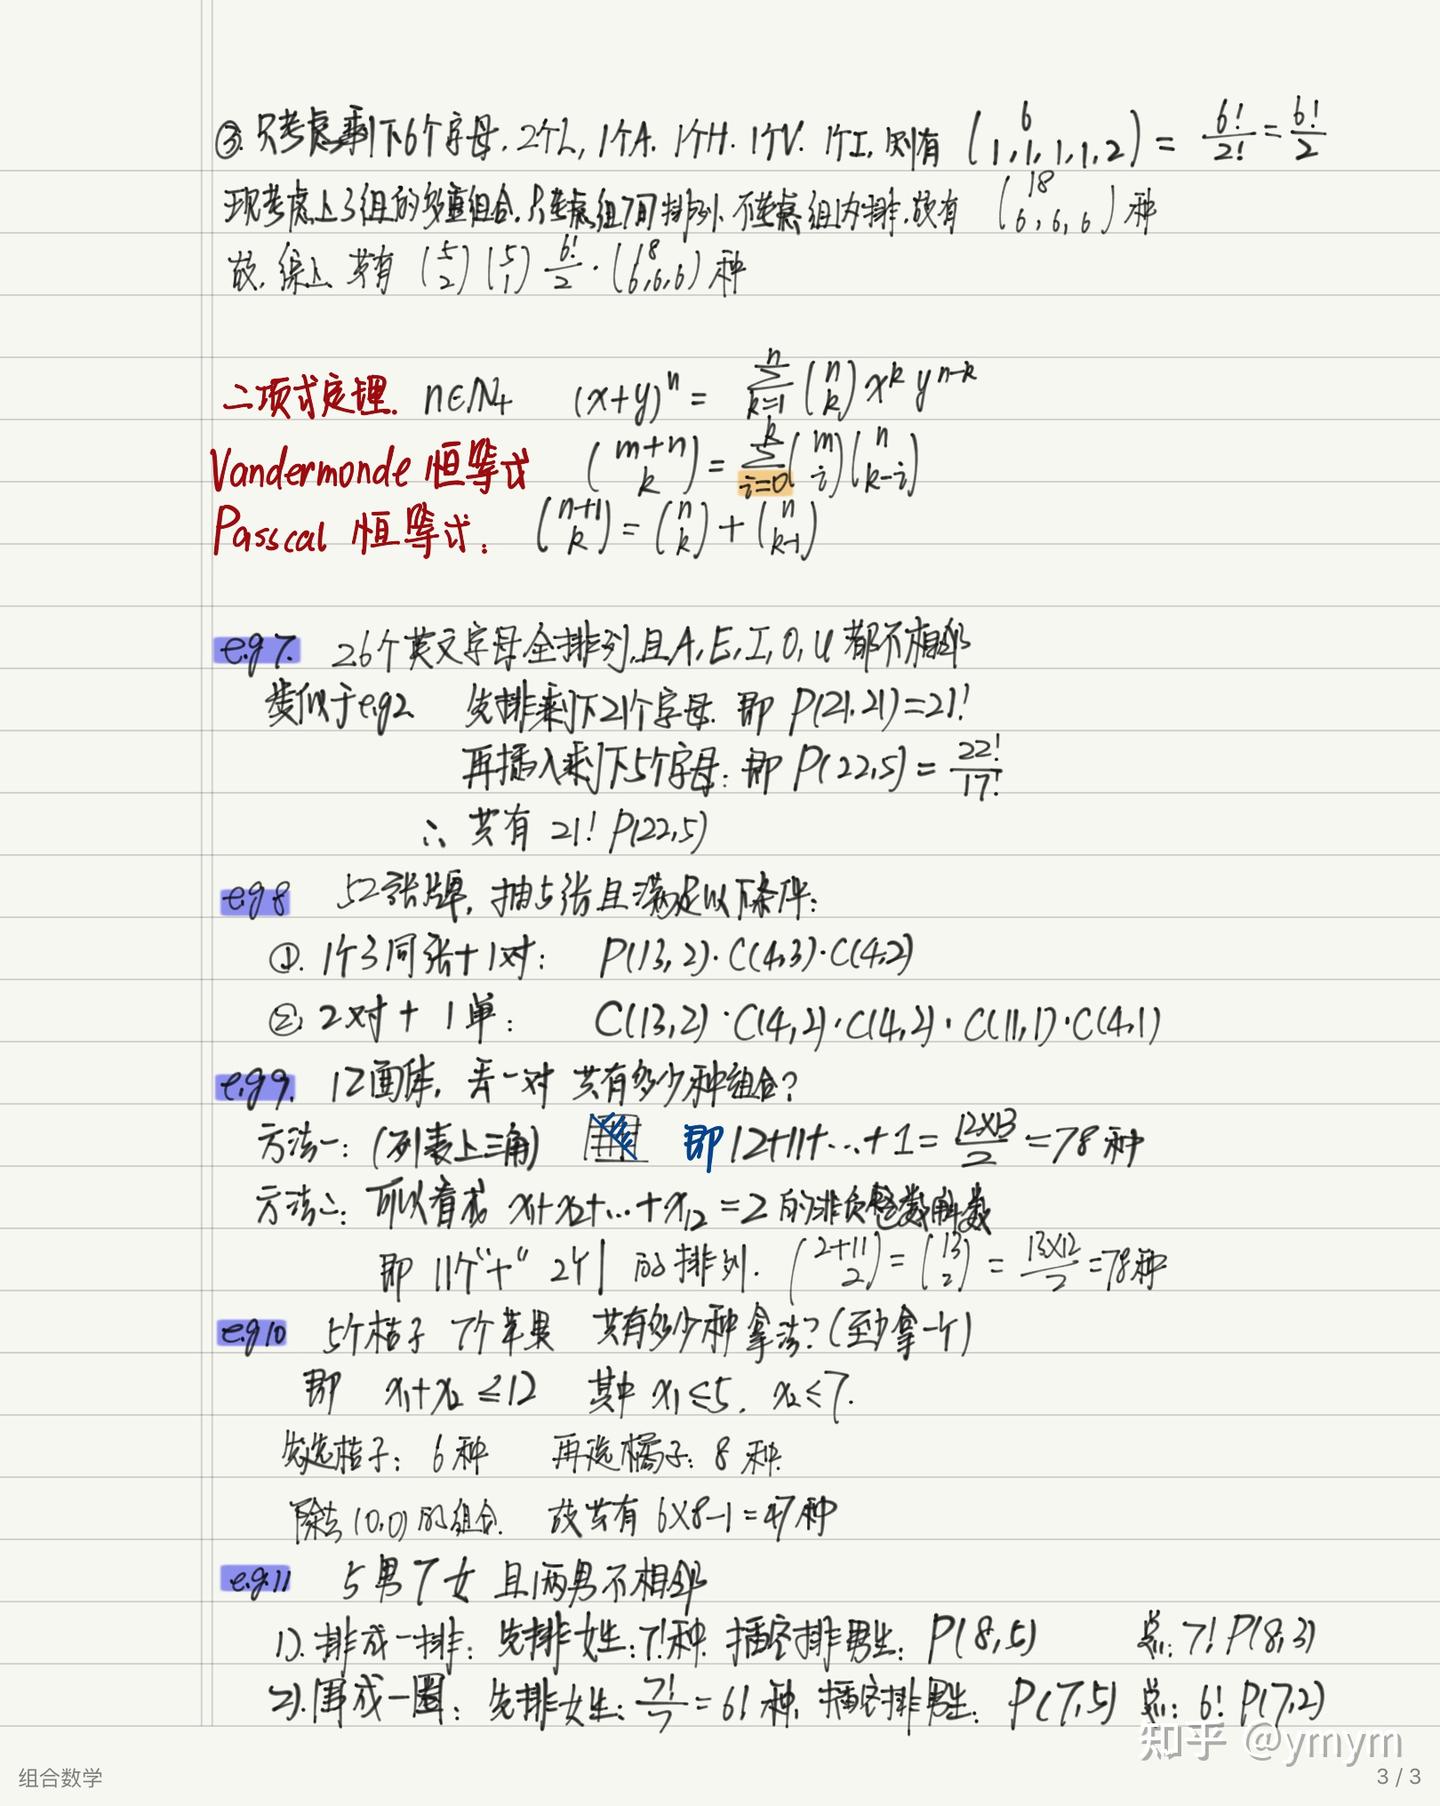 ③. 只考虑剩下6个字母. 2个L, 1个A. 1个H. 1个V. 1个I, 则有 (6 / 1,1,1,1,2) = 6!/2! = 6!/2
现考虑上3组的多重组合. 只考虑组间排列. 不考虑组内排. 故有 (18 / 6,6,6) 种
故. 综上 共有 (5 / 2) (5 / 1) 6!/2 · (18 / 6,6,6) 种
二项式定理. n∈N₊ (x+y)ⁿ = Σ_{k=1}^{n} (n / k) x^k y^{n-k}
Vandermonde 恒等式 (m+n / k) = Σ_{i=0}^{k} (m / i) (n / k-i)
Passcal 恒等式: (n+1 / k) = (n / k) + (n / k-1)
e.g 7. 26个英文字母全排列, 且A, E, I, O, U 都不相邻
类似于e.g2 先排剩下21个字母. 即 P(21,21)=21!
再插入剩下5个字母: 即 P(22,5) = 22!/17!
∴ 共有 21! P(22,5)
e.g 8 52张牌, 抽5张且满足以下条件:
①. 1个3同张+1对: P(13,2)·C(4,3)·C(4,2)
②. 2对+1单: C(13,2)·C(4,2)·C(4,2)·C(11,1)·C(4,1)
e.g 9. 12面体, 丢一对 共有多少种组合?
方法一: (列表上三角) 即 12+11+…+1 = 12×13/2 = 78种
方法二: 可以看成 x₁+x₂+…+x₁₂ = 2 的非负整数解数
即 11个"+" 2个| 的排列. (2+11 / 2) = (13 / 2) = 13×12/2 = 78种
e.g 10 5个桔子 7个苹果 共有多少种拿法? (至少拿一个)
即 x₁+x₂ ≤ 12 其中 x₁≤5, x₂≤7.
先选桔子: 6种 再选橘子: 8种.
除去 (0,0) 的组合. 故共有 6×8-1=47种
e.g.11 5男7女 且两男不相邻
1). 排成一排: 先排女生: 7!种. 插空排男生: P(8,5) 总: 7! P(8,3)
2). 围成一圈: 先排女生: 7!/7 = 6! 种, 插空排男生: P(7,5) 总: 6! P(7,2)
知乎 @ymym
组合数学
3 / 3